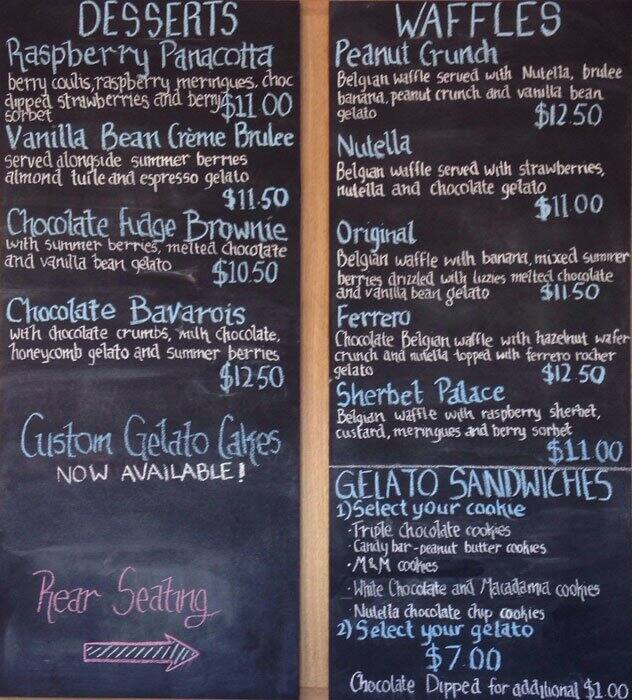 DESSERTS
Raspberry Panacotta
berry coulis, raspberry meringues, choc
dipped strawberries and berry $11.00
sorbet
Vanilla Bean Crème Brulee
served alongside summer berries
almond tuile and espresso gelato
$11.50
Chocolate Fudge Brownie
with summer berries, melted chocolate
and vanilla bean gelato $10.50
Chocolate Bavarois
with chocolate crumbs, milk chocolate,
honeycomb gelato and summer berries
$12.50
Custom Gelato Cakes
NOW AVAILABLE!
Rear Seating
WAFFLES
Peanut Crunch
Belgian waffle served with Nutella, brulee
banana, peanut crunch and vanilla bean
gelato $12.50
Nutella
Belgian waffle served with strawberries,
nutella and chocolate gelato
$11.00
Original
Belgian waffle with banana, mixed summer
berries drizled with lizzies melted chocolate
and vanilla bean gelato $11.50
Ferrero
Chocolate Belgian waffle with hazelnut wafer
crunch and nutella topped with ferrero rocher
gelato $12.50
Sherbet Palace
Belgian waffle with raspberry sherbet,
custard, meringues and berry sorbet
$11.00
GELATO SANDWICHES
1) Select your cookie
· Triple chocolate cookies
· Candy bar-peanut butter cookies
· M&M cookies
· White Chocolate and Macadamia cookies
· Nutella chocolate chip cookies
2) Select your gelato
$7.00
Chocolate Dipped for additional $1.00